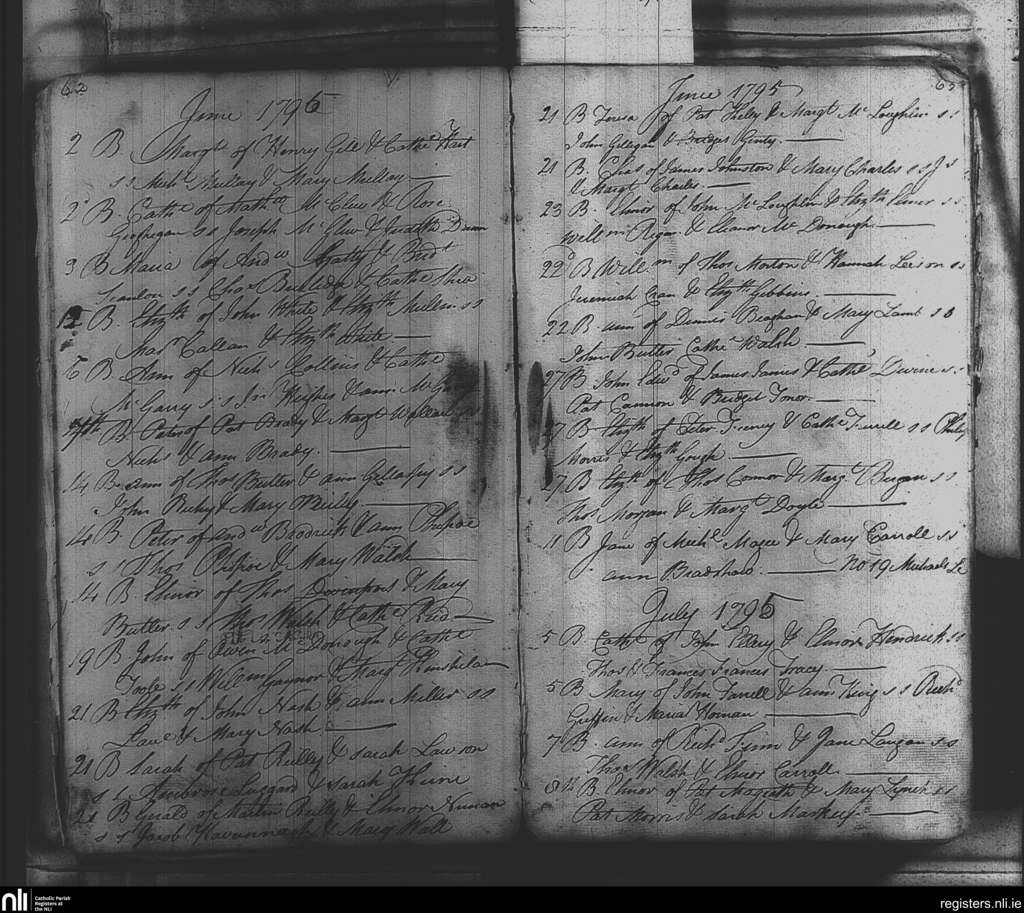 62
June 1795
2 B Margt of Henry Gill & Cathe Hart
s s Michl Mullay & Mary Mullay
2d B. Cathe of Mathw McClew & Rose
Geoghegan s s Joseph McClew & Dunn
3 B Maria of Andw Gatty & Bridt
Scanlon s s Chas & Cathe
12 B. Elizth of John White & Elizth Mullin s s
Callan & Elizth White
6 B Ann of Nichs Collins & Cathe
McGarry s s Jno Hughes & ann
B Peter of Pat Brady & Margt Wallace s s
Nichs & ann Brady.
14 B. ann of Thos Butler & ann s s
John & Mary
14 B. Peter of Andw Brodrick & ann Phepoe
s s Thos Phepoe & Mary Walsh
14 B. Elinor of Thos Davenport & Mary
Butler s s Thos Walsh & Cathe Reid
19 B John of Owen McDonough & Cathe
Toole s s Willm Gaynor & Mary Kinshela
21 B Elizth of John Nash & ann Miller s s
Lawe & Mary Nash
21 B Sarah of Pat Reilly & Sarah Lawson
s s Ambrose & Sarah
21 B Gerald of Martin Reilly & Elinor Nunan
s s Jacob Kavannagh & Mary Wall
63
June 1795
21 B Teresa of Pat Kelly & Margt McLoughlin s s
John Gilligan & Bridget Ginty.
21 B. Chas of James Johnston & Mary Charles s s J s
& Margt Charles.
23 B. Elinor of John McLoughlin & Elizth s s
Willm Ryan & Eleanor McDonough.
22d B Willm of Thos Morton & Hannah Leeson s s
Jeremiah & Elizth Gibbins
22 B. ann of Dennis Beaghan & Mary Lamb s s
John Butler Cathe Walsh
27 B John Edwd of James James & Cathe Devine s s
Pat Cannon & Bridget
27 B Elizth of Peter Feeney & Cathe Farrell s s Philip
Morris & Elizth Gough
27 B Elizth of Thos Connor & Margt Bergan s s
Thos Morgan & Margt Doyle
11 B Jane of Michl Magee & Mary Carroll s s
ann Bradshaw. No 19 Michaels Le
July 1795
5 B. Cathe of John Pellery & Elinor Hendrick s s
Thos & Frances Francis Tracy.
5 B. Mary of John Farrell & ann King s s Richd
Griffin & Maria Homan
7 B. ann of Richd Flynn & Jane Langan s s
Thos Walsh & Elinor Carroll
8th B. Elinor of Pat Magrath & Mary Lynch s s
Pat Morris & Sarah Markey.
nli
Catholic Parish
Registers at
the NLI
registers.nli.ie